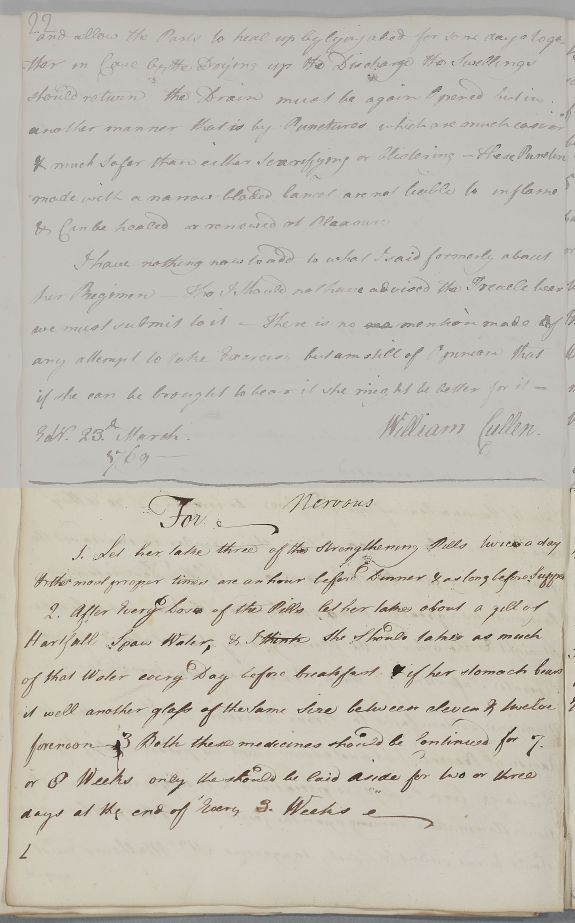 22
and allow the Parts to heal up by lying abed for some days toge
-ther in Case by the Drying up the Discharge the Swellings
should return the Drain must be again Opened but in
another manner that is by Punctures which are much easier
& much safer than either Scarrifying or Blistering – these Puncturs
made with a narrow bladed lancet are not liable to inflame
& Can be healed or renewed at Pleasure
I have nothing now to add to what I said formerly about
her Regimen – tho I should not have advised the Treacle beer
we must submit to it – there is no mention made of
any attempt to take Exercise but am still of Opinion that
if she can be brought to bear it she might be better for it –
Edr. 23d March.
1769 –
William Cullen.
For Nervous
1. Let her take three of the Strengthening Pills twice a day
& the most proper times are an hour before Dinner & as long before Supper
2. After Every Dose of the Pills let her take about a gill of
Hartfall Spaw Water, & I think She should take as much
of that Water every Day before breakfast & if her stomach bears
it well another glass of the same Size between eleven & twelve
forenoon 3 Both these medicines should be Continued for 7.
or 8 Weeks only the should be laid aside for two or three
days at the end of Every 3. Weeks